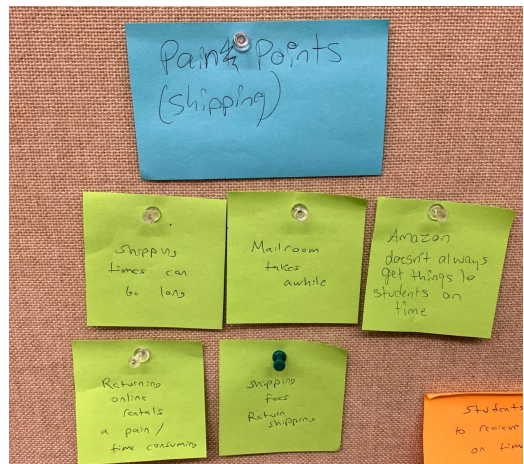 Pain Points
(shipping)
Shipping
times can
be long
Mailroom
takes
awhile
Amazon
doesn't always
get things to
students on
time
Returning
online
rentals
a pain /
time consuming
Shipping
fees
Return
shipping
Students
to recieve
on time